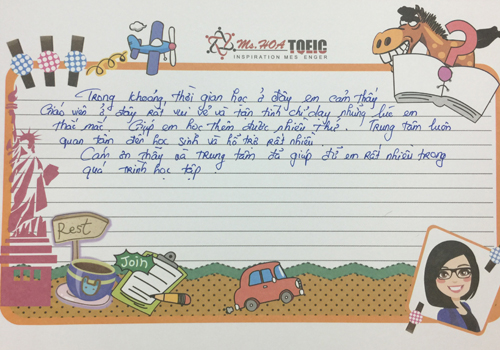 Ms. HOA TOEIC
INSPIRATION MESSENGER
Trong khoảng thời gian học ở đây em cảm thấy
Giáo viên ở đây rất vui vẻ và tận tình chỉ dạy những lúc em
thắc mắc. Giúp em học thêm được nhiều thứ. Trung tâm luôn
quan tâm đến học sinh và hỗ trợ rất nhiều
Cảm ơn thầy và trung tâm đã giúp đỡ em rất nhiều trong
quá trình học tập
Rest
Join